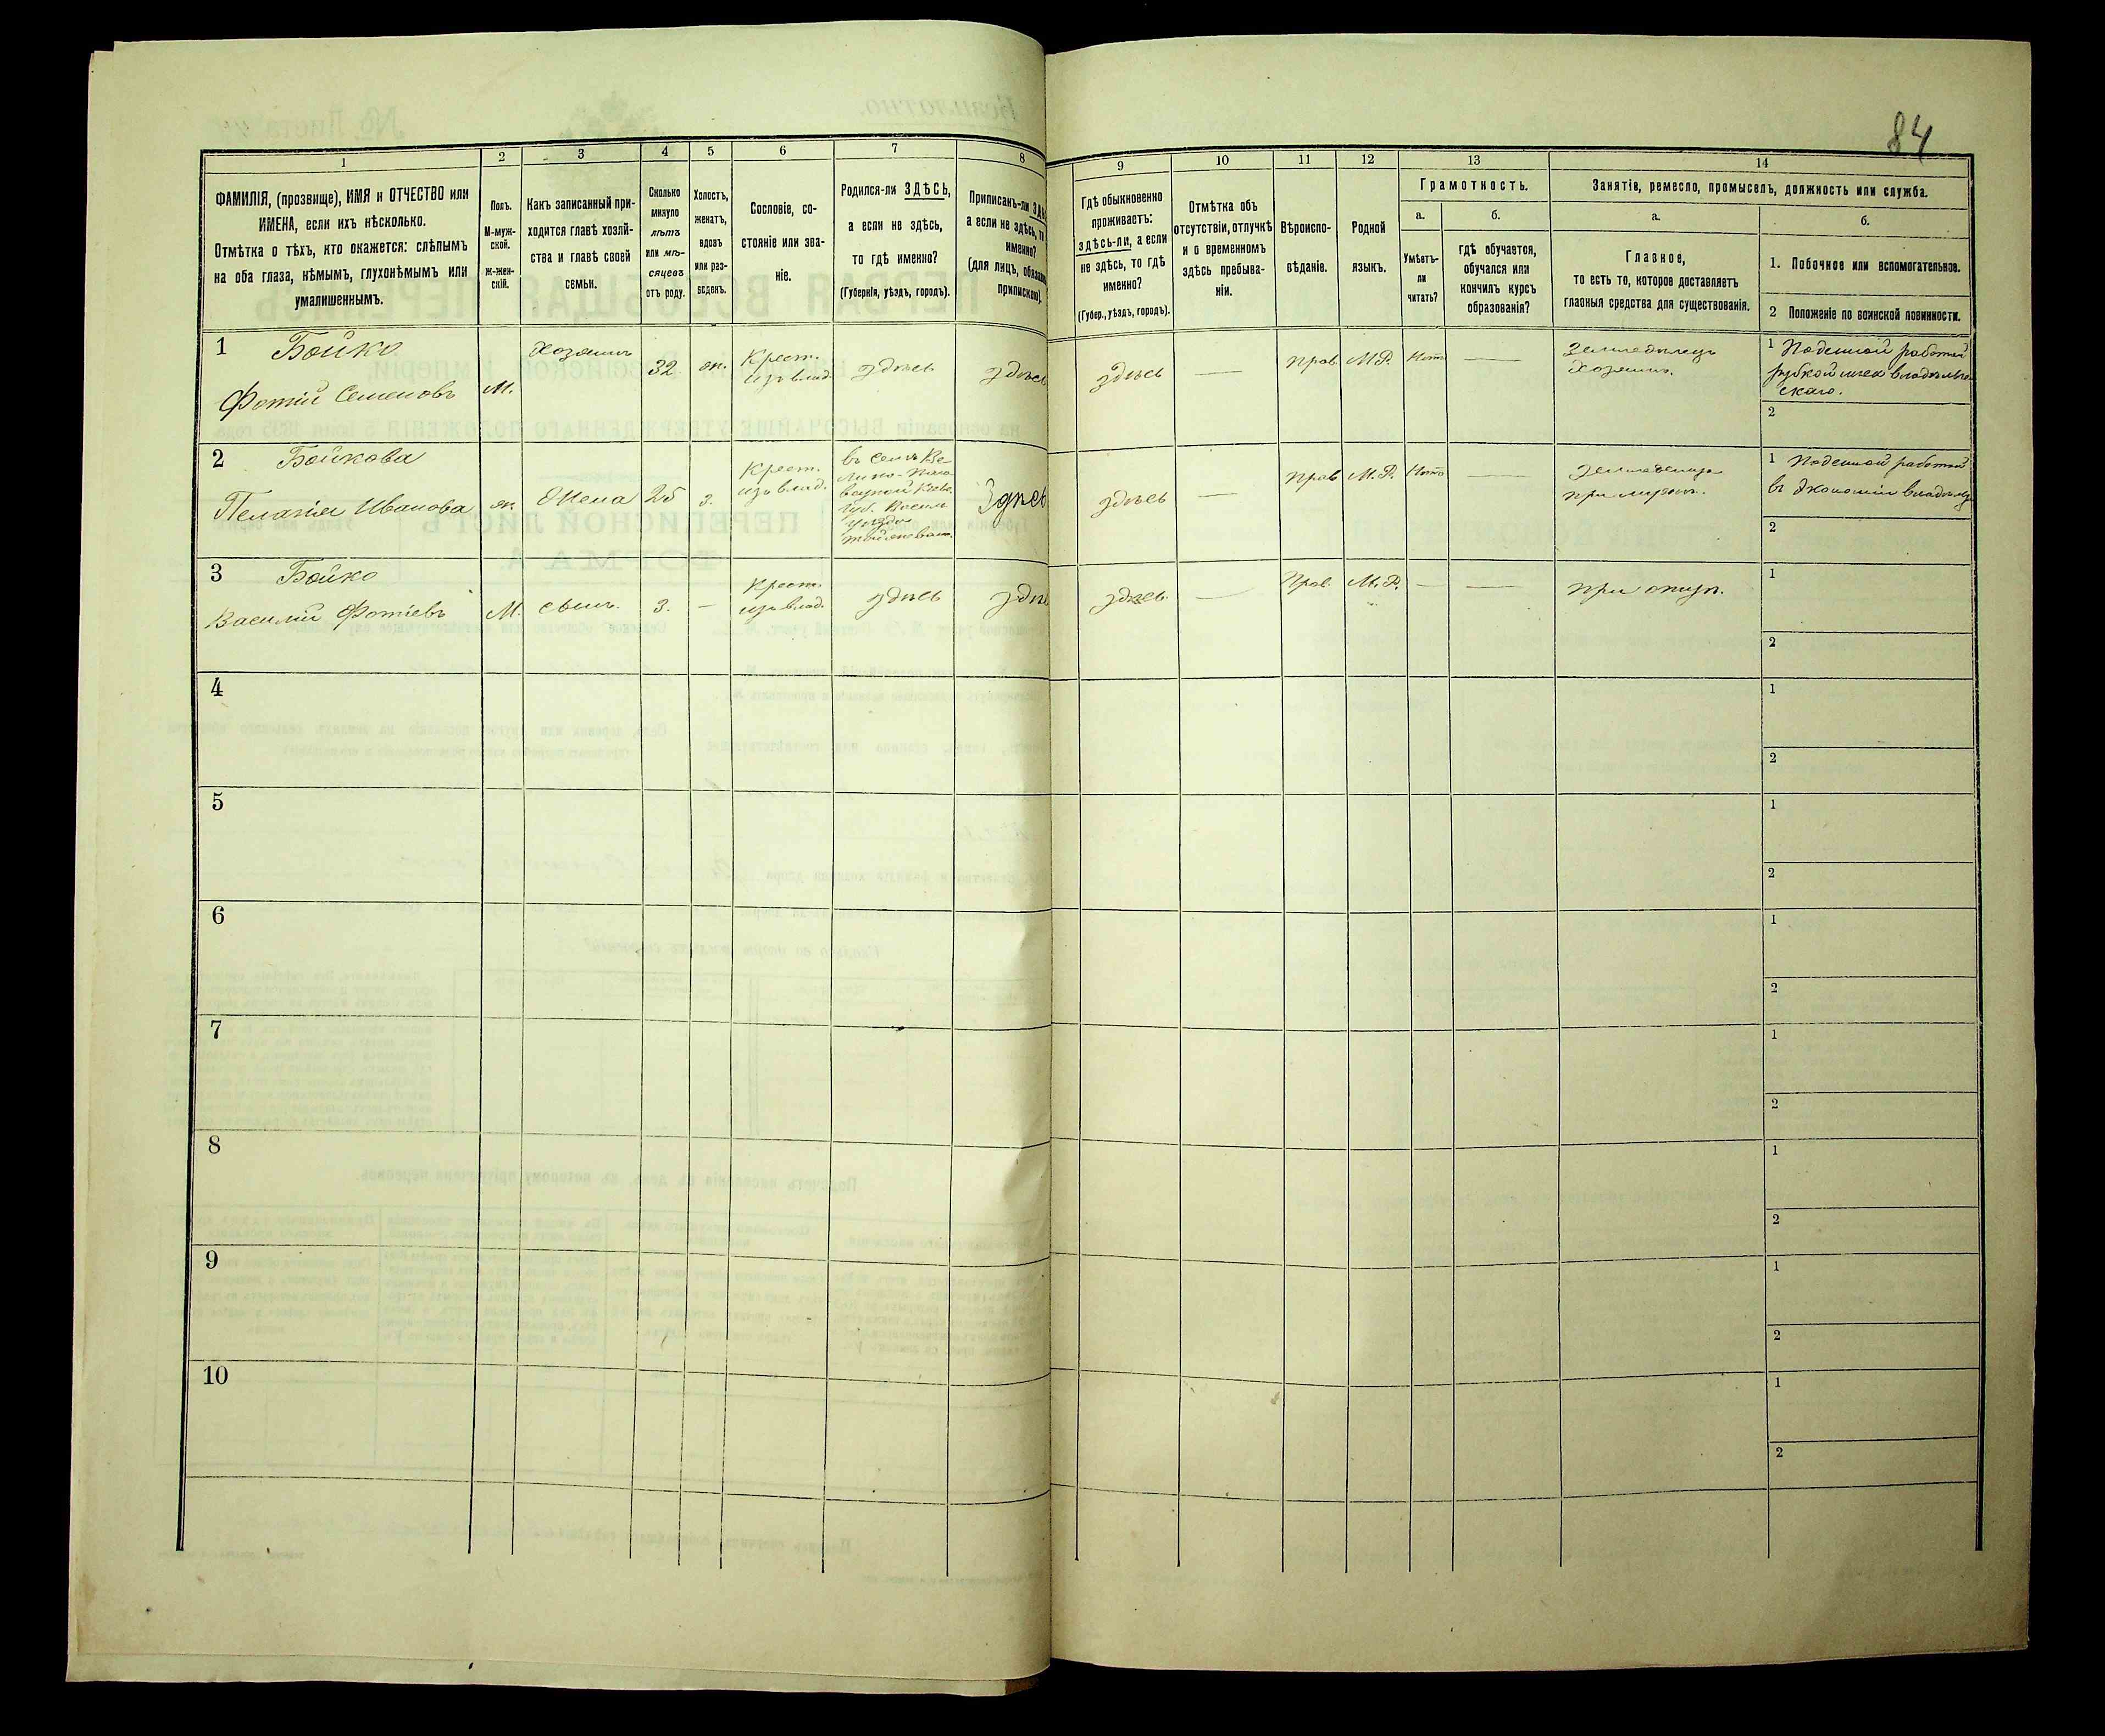 84
1
2
3
4
5
6
7
8
9
10
11
12
13
14
ФАМИЛІЯ, (прозвище), ИМЯ и ОТЧЕСТВО или
ИМЕНА, если ихъ нѣсколько.
Отмѣтка о тѣхъ, кто окажется: слѣпымъ
на оба глаза, нѣмымъ, глухонѣмымъ или
умалишеннымъ.
Полъ.
М-муж-
ской.
ж-жен-
скій.
Какъ записанный при-
ходится главѣ хозяй-
ства и главѣ своей
семьи.
Сколько
минуло
лѣтъ
или мѣ-
сяцевъ
отъ роду.
Холостъ,
женатъ,
вдовъ
или раз-
веденъ.
Сословіе, со-
стояніе или зва-
ніе.
Родился-ли ЗДѢСЬ,
а если не здѣсь,
то гдѣ именно?
(Губернія, уѣздъ, городъ).
Приписанъ-ли
а если не здѣсь,
именно?
(для лицъ,
припискою)
Гдѣ обыкновенно
проживаетъ:
здѣсь-ли, а если
не здѣсь, то гдѣ
именно?
(Губер., уѣздъ, городъ).
Отмѣтка объ
отсутствіи, отлучкѣ
и о временномъ
здѣсь пребыва-
ніи.
Вѣроиспо-
вѣданіе.
Родной
языкъ.
Грамотность.
а.
Умѣетъ-
ли
читать?
б.
гдѣ обучается,
обучался или
кончилъ курсъ
образованія?
Занятіе, ремесло, промыселъ, должность или служба.
а.
Главное,
то есть то, которое доставляетъ
главныя средства для существованія.
б.
1. Побочное или вспомогательное.
2 Положеніе по воинской повинности.
1 Бойко
Фотій Семеновъ
М.
Хозяинъ
32.
ж.
Крест.
изъ влад.
здѣсь
здѣсь
здѣсь
—
Прав.
М.Р.
Нѣтъ
—
Земледѣлецъ
Хозяинъ.
1 Поденной работой
рубкой лѣса владѣльче
скаго.
2
2 Бойкова
Пелагія Иванова
ж.
Жена
25
з.
Крест.
изъ влад.
Здѣсь
здѣсь
—
Прав
М.Р.
Нѣтъ
—
при мужѣ.
1 Поденной работой
въ экономіи
2
3 Бойко
Василій Фотіевъ
М.
сынъ.
3.
—
Крест.
изъ влад.
здѣсь
здѣсь.
—
Прав.
М.Р.
—
—
при отцѣ.
1
2
4
1
2
5
1
2
6
1
2
7
1
2
8
1
2
9
1
2
10
1
2